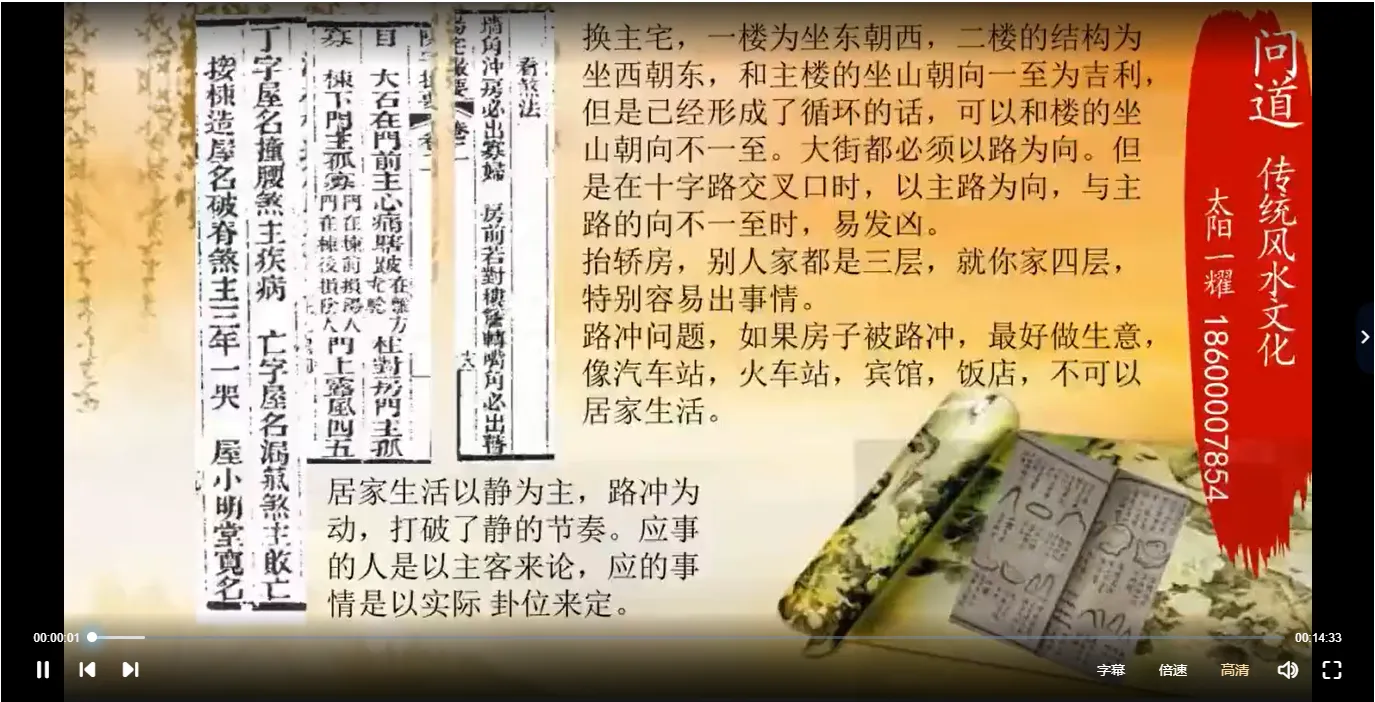 换主宅，一楼为坐东朝西，二楼的结构为
坐西朝东，和主楼的坐山朝向一至为吉利，
但是已经形成了循环的话，可以和楼的坐
山朝向不一至。大街都必须以路为向。但
是在十字路交叉口时，以主路为向，与主
路的向不一至时，易发凶。
抬轿房，别人家都是三层，就你家四层，
特别容易出事情。
路冲问题，如果房子被路冲，最好做生意，
像汽车站，火车站，宾馆，饭店，不可以
居家生活。
居家生活以静为主，路冲为
动，打破了静的节奏。应事
的人是以主客来论，应的事
情是以实际 卦位来定。
看煞法
墙角冲房必出寡婦 房前若對樓簷轉嘴角必出瞽
目 大石在門前主心痛瞎跛 在離方 柱對房門主孤
寡 棟下門主孤寡 門在棟前損陽人 門在棟後損陰人 門上露風四五
丁字屋名撞腰煞主疾病 亡字屋名漏氣煞主敗亡
按棟造屋名破脊煞主三年一哭 屋小明堂寬名
问道 传统风水文化
太阳一耀 18600007854
00:00:01
00:14:33
字幕 倍速 高清